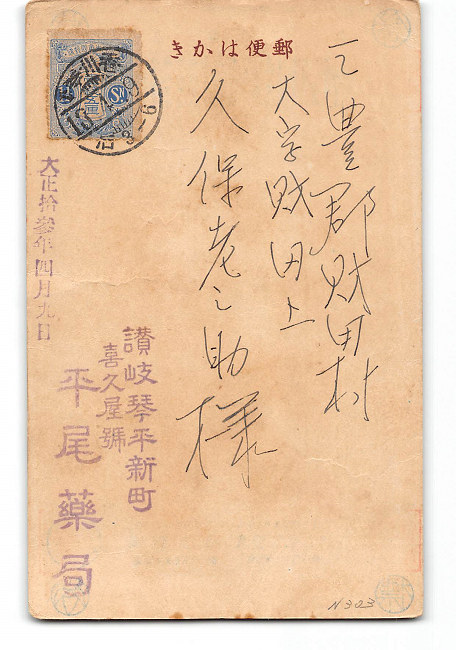 郵便はかき
三豊郡財田村
大字財田上
久保老之助様
大正拾參年四月九日
讃岐琴平新町
喜久屋號
平尾藥局
N303